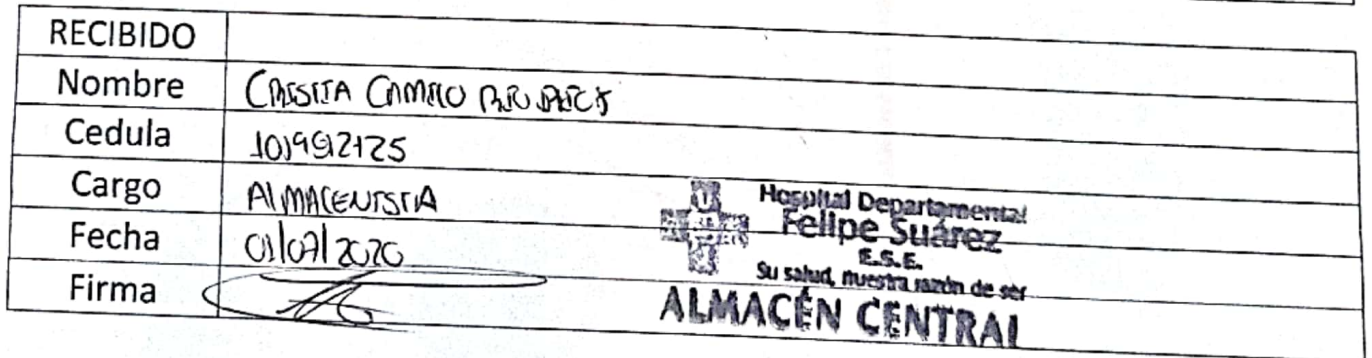 RECIBIDO
Nombre
Cedula
Cargo ALMACENISTA
Fecha 01/07/2020
Firma
Hospital Departamental
Felipe Suárez
E.S.E.
Su salud, nuestra razón de ser
ALMACÉN CENTRAL